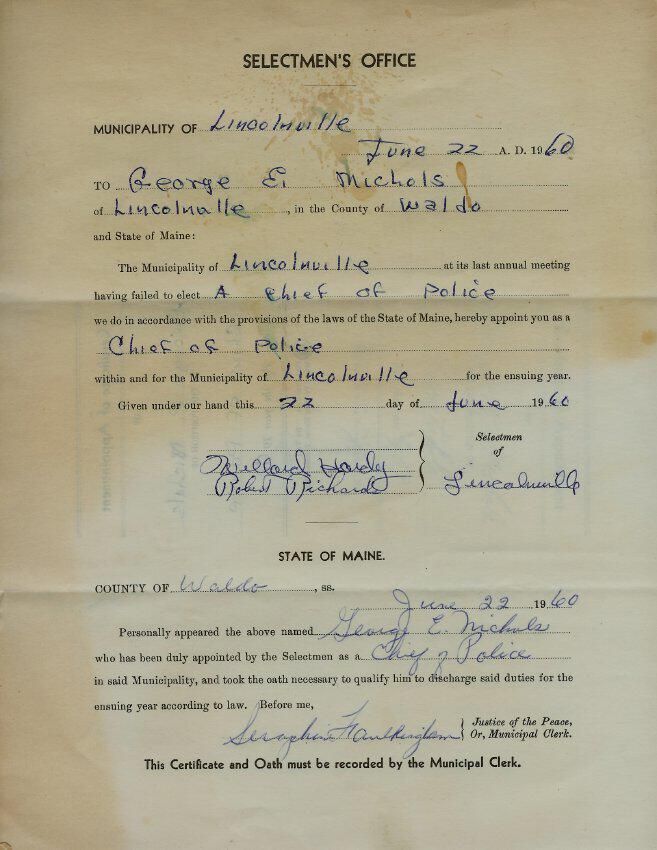 SELECTMEN'S OFFICE
MUNICIPALITY OF Lincolnville
June 22 A. D. 1960
TO George E. Nichols
of Lincolnville, in the County of Waldo
and State of Maine:
The Municipality of Lincolnville at its last annual meeting
having failed to elect A Chief of Police
we do in accordance with the provisions of the laws of the State of Maine, hereby appoint you as a
Chief of Police
within and for the Municipality of Lincolnville for the ensuing year.
Given under our hand this 22 day of June 1960
Selectmen
of
Willard Hardy
Robert Richards
Lincolnville
STATE OF MAINE.
COUNTY OF Waldo, ss.
June 22 1960
Personally appeared the above named George E. Nichols
who has been duly appointed by the Selectmen as a Chief of Police
in said Municipality, and took the oath necessary to qualify him to discharge said duties for the
ensuing year according to law. Before me,
Justice of the Peace,
Or, Municipal Clerk.
This Certificate and Oath must be recorded by the Municipal Clerk.